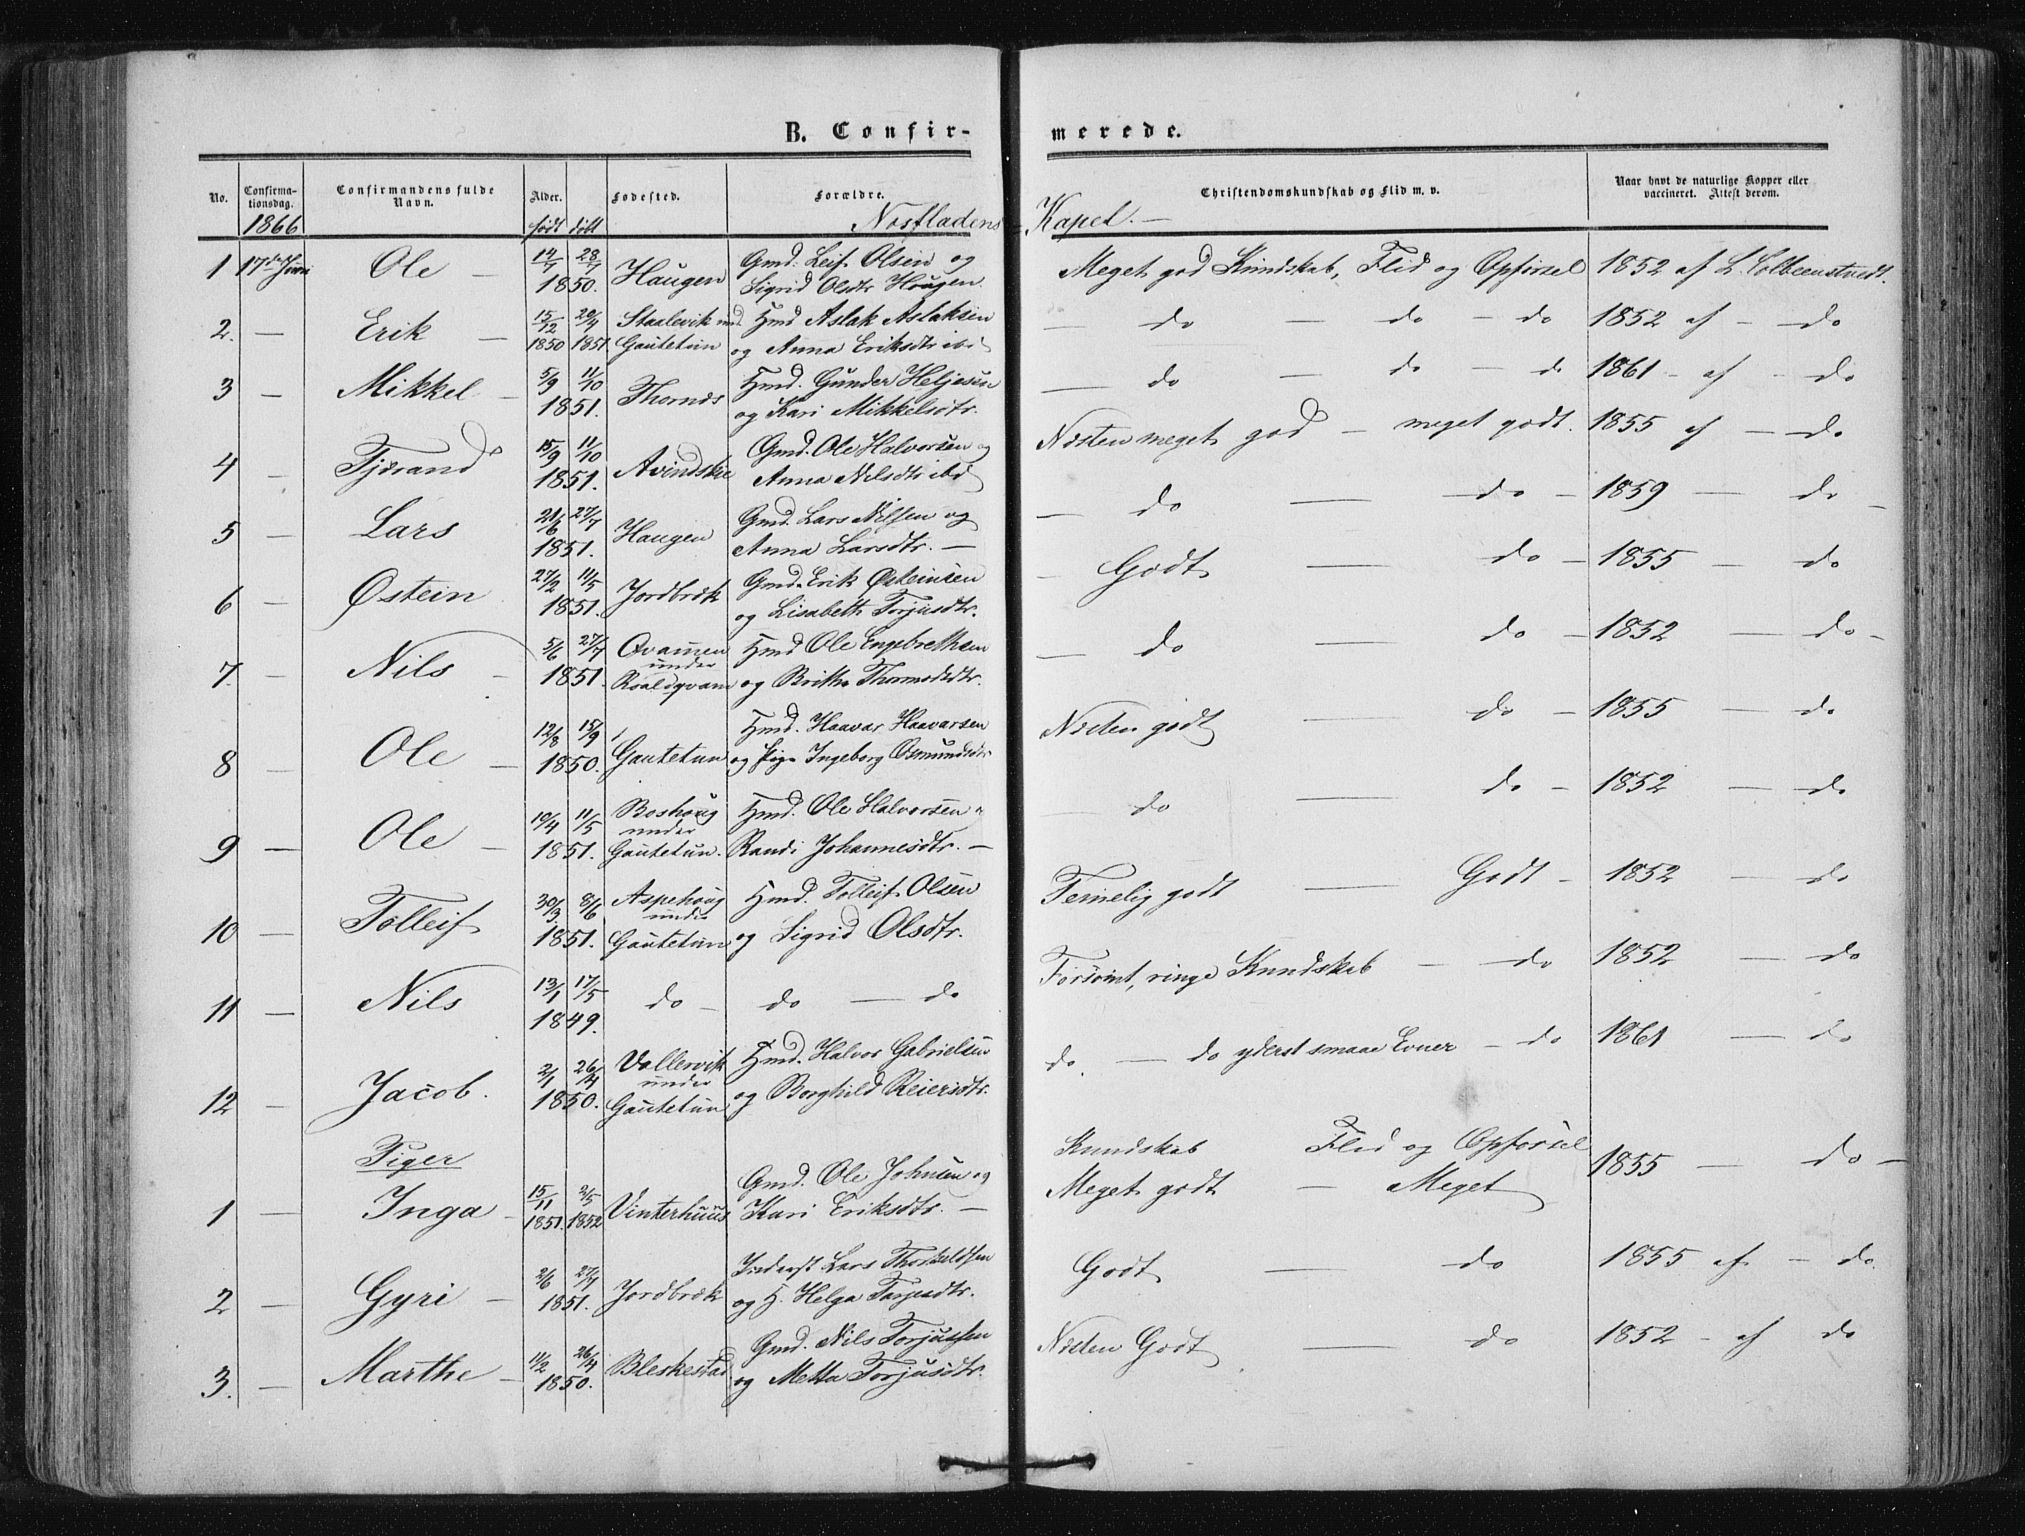 B. Confirmerede.
No. Confirmationsdag. Confirmandens fulde Navn. Alder. Fødested. Forældre. Christendomskundskab og Flid m. v. Naar havt de naturlige Kopper eller vaccineret. Attest derom.
1866 født døbt Næsfladens Kapel. —
1 17de Juni Ole — 14/7 28/7 1850. Haugen Gmd. Leif Olsen og
Sigrid Olsdtr Hougen. Meget god Kundskab, Flid og Opførsel 1852 af L. Colbeenstvedt.
2. — Erik — 15/12 1850 20/4 1851 Staalevik und. Gautetun Hmd Aslak Aslaksen
og Anna Eriksdtr ibd — do — do — do 1852 af — do
3 — Mikkel — 5/9 11/10 1851. Thornæs Hmd. Gunder Heljesen
og Kari Mikkelsdtr. — do — do — do 1861 — af — do
4 — Fjærand 15/9 11/10 1851. Avindskie Gmd. Ole Halvorsen og
Anna Nilsdtr ibd Næsten meget god — meget godt. 1855 af — do
5 — Lars 21/6 27/7 1851. Haugen Gmd. Lars Nilsen og
Anna Larsdtr. — — do — do — 1859 — do —
6 — Østein 27/2 11/5 1851. Jordbræk Gmd. Erik Østeinsen
og Lisabeth Torjusdtr. — Godt — do — 1855 — do
7. — Nils — 5/6 27/7 1851. Qvamen under Roaldqvam Hmd Ole Engebrethsen
og Britha Thormodsdtr. — do — do — 1852 — do —
8 — Ole — 12/8 15/9 1850. Gautetun Hmd. Haavar Haavarsen
og Pige Ingeborg Osmundsdtr Næsten godt — do — 1855 — do
9 — Ole — 10/4 11/5 1851. Boshoug under Gautetun. Hmd. Ole Halvorsen
Randi Johannesdtr. — — do — do — 1852 — do
10 — Tolleif 30/3 8/6 1851. Aspehoug under Gautetun Hmd. Tolleif Olsen
og Sigrid Olsdtr. Temelig godt — Godt — 1852 — do
11 — Nils 13/1 17/5 1849. do — do — do Forsømt, ringe Kundskab — do 1852 — do
12 — Jacob. 2/1 26/4 1850. Vallervik under Gautetun Hmd. Halvor Gabrielsen
og Borghild Reiersdtr. do. — do yderst smaae Evner — do 1861 — do
Piger Kundskab Flid og Opførsel
1 — Inga — 15/11 1851. 2/5 1852 Vinterhuus Gmd. Ole Johnsen og
Kari Eriksdtr. — Meget godt — Meget 1855 — do —
2 — Gyri — 2/6 27/7 1851. Jordbræk Inderst Lars Thorkeldsen
og H. Helga Torjusdtr. Godt — do 1855 af — do.
3. — Marthe — 11/2 26/4 1850. Bleskestad Gmd. Nils Torjussen
og Metta Torjusdtr. Næsten Godt — do 1852 — af do